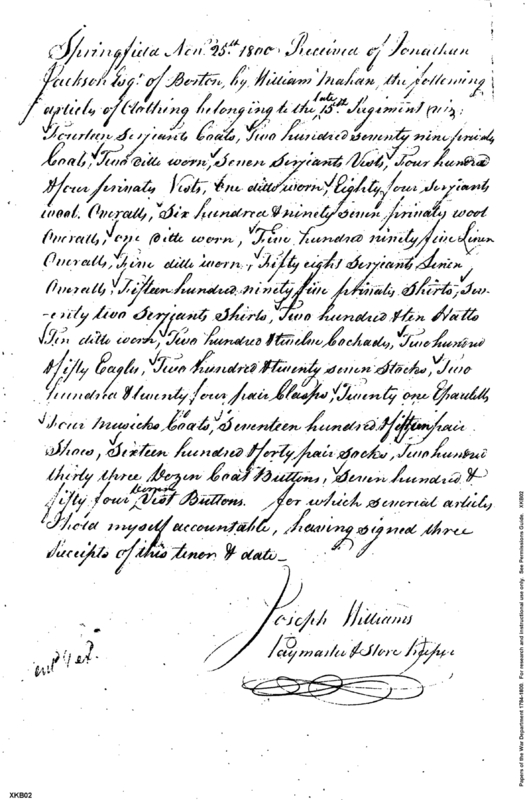 Springfield Novr 25th 1800 Received of Jonathan
Jackson Esqr of Boston, by William Mahan, the following
articles of Clothing belonging to the late 15th Regiment viz:
Fourteen Serjeants Coats, Two hundred seventy nine privates
Coats, Two ditto worn, Seven Serjants Vests, Four hundred
& four privates Vests, One ditto worn, Eighty four Serjeants
wool. Overalls, Six hundred & ninety seven privates wool
Overalls, one ditto worn, Five hundred ninety five Linen
Overalls, Five ditto worn, Fifty eight Serjeants Linen
Overalls, Fifteen hundred ninety five privates Shirts, Sev-
-enty two Serjeants Shirts, Two hundred & ten Hatts
Ten ditto worn, Two hundred & twelve Cockads, Two hundred
& fifty Eagles, Two hundred & twenty seven Stocks, Two
hundred & twenty four pair Clasps, Twenty one Epauletts
Four Musicks Coats, Seventeen hundred & fifteen pair
Shoes, Sixteen hundred & forty pair socks, Two hundred
thirty three Dozen Coat Buttons, Seven hundred &
fifty four Dozen Vest Buttons. for which several articles
I hold myself accountable, having signed three
Receipts of this tenor & date—
Joseph Williams
Paymaster & Store Keeper
XKB02
Papers of the War Department 1784-1800. For research and instructional use only. See Permissions Guide. XKB02